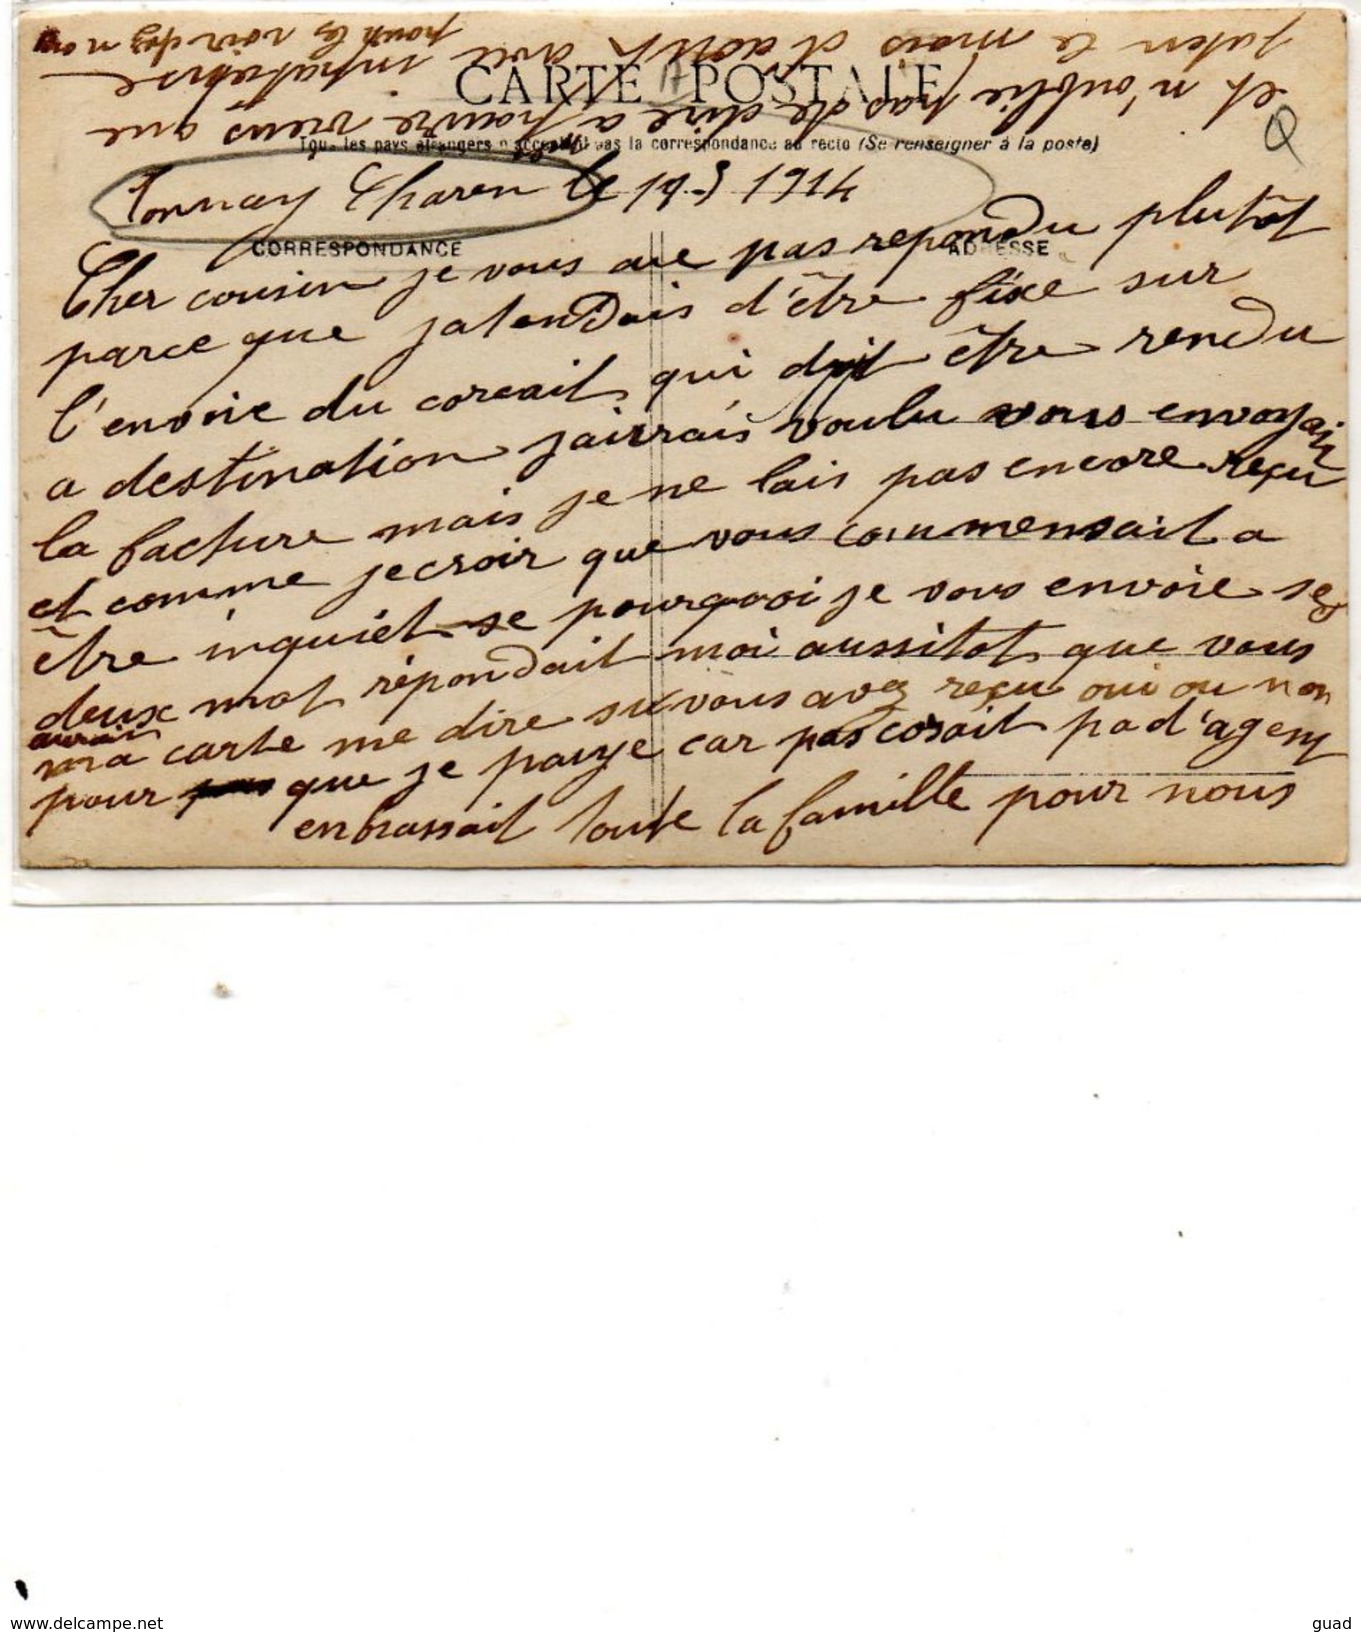 CARTE POSTALE
Tous les pays étrangers n'acceptent pas la correspondance au recto (Se renseigner à la poste)
CORRESPONDANCE
ADRESSE
Tonnay Charen le 19-5 1914
Cher cousin je vous aie pas repondu plutôt
parce que jatendais d'être fixe sur
l'envoie du corcail qui doit être rendu
a destination jaurrais voulu vous envoyair
la facture mais je ne lais pas encore reçu
et comme jecroir que vous commensait a
être inquiét se pourquoi je vous envoie se
deux mot répondait moi aussitot que vous
aurait
ma carte me dire si vous avez reçu oui ou non
pour que je paye car pas cosait pa d'agent
enbrassait toute la famille pour nous
et n'oublie pas de dire a pauvre vieus que
jaten le mois d'aout avec inpatiense
pour les voir chez nou
Q
www.delcampe.net
guad